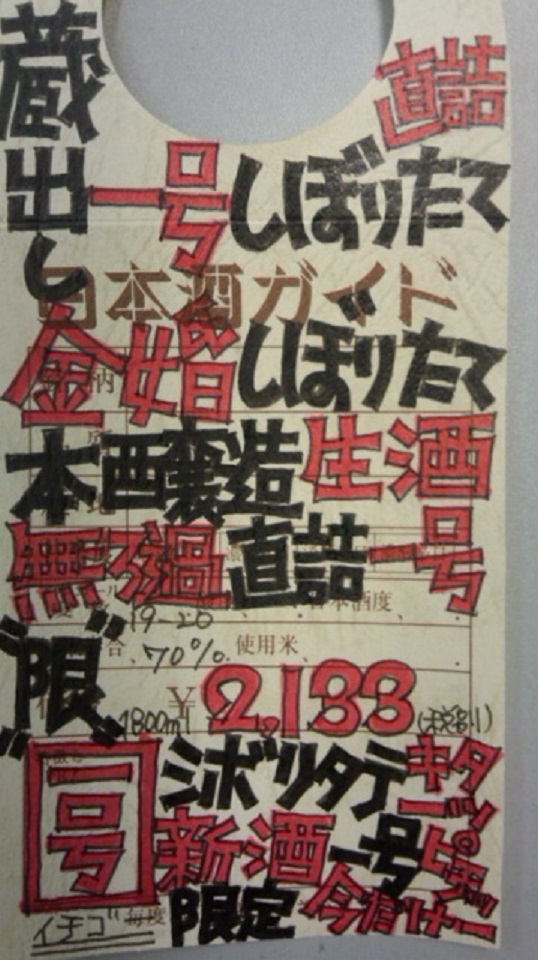 蔵出し一号しぼりたて
直詰
日本酒ガイド
金婚しぼりたて
本醸造生酒
無濾過直詰一号
19-20
日本酒度
合 70% 使用米
"限" 1800ml ¥2,133(税別)
一号
シボリタテ キターッ!
新酒一号
限定 今だけー!
イチゴ 毎度